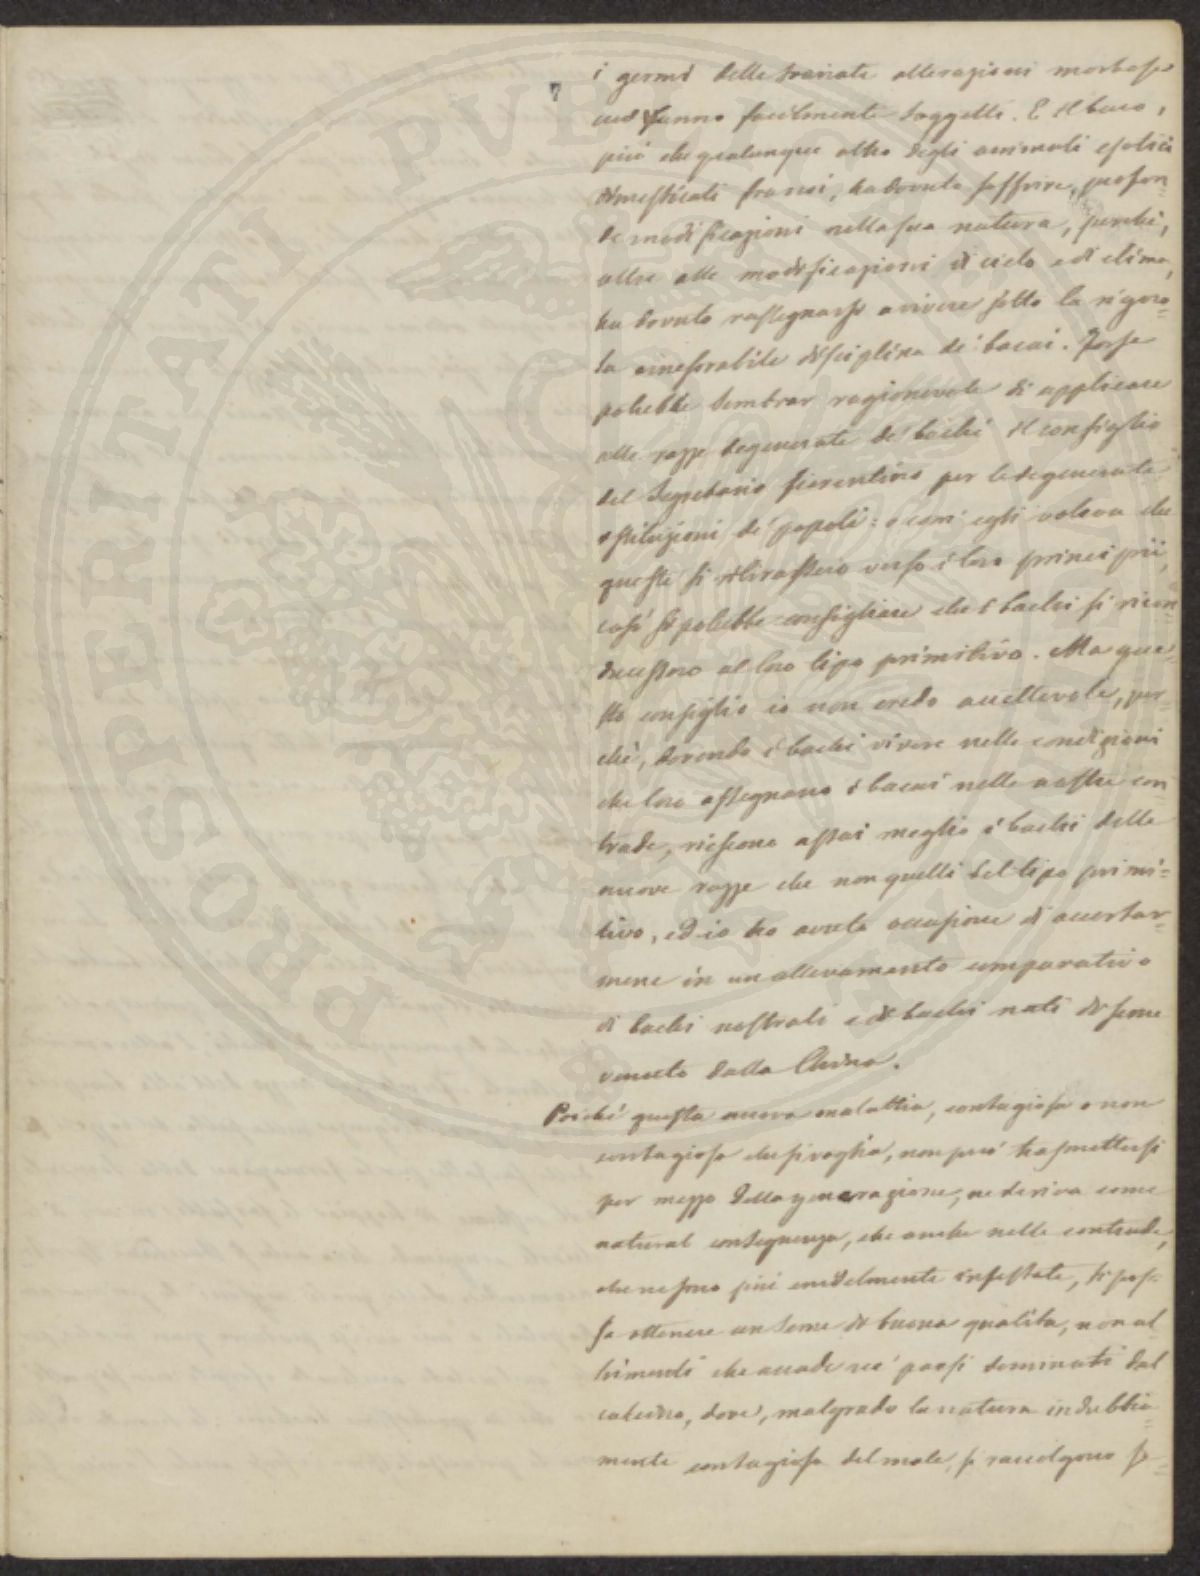 7
i germi delle svariate alterazioni morbose
cui vanno facilmente soggetti. E il baco,
più che qualunque altro degli animali esotici
dimesticati fra noi, ha dovuto soffrire profon=
de modificazioni nella sua natura, perchè,
oltre alle modificazioni di cielo e di clima,
ha dovuto rassegnarsi a vivere sotto la rigoro=
sa inesorabile disciplina de' bacai. Forse
potrebbe sembrar ragionevole di applicare
alle razze degenerate de' bachi il consiglio
del Segretario fiorentino per le degenerate
istituzioni de' popoli: e com' egli voleva che
queste si ritirassero verso i loro principii,
così si potrebbe consigliare che i bachi si ricon
ducessero al loro tipo primitivo. Ma que=
sto consiglio io non credo accettevole, per=
chè, dovendo i bachi vivere nelle condizioni
che loro assegnano i bacai nelle nostre con
trade, riescono assai meglio i bachi delle
nuove razze che non quelli del tipo primi=
tivo, ed io ho avuto occasione di accertar=
mene in un allevamento comparativo
di bachi nostrali e di bachi nati di seme
venuto dalla China.
Poichè questa nuova malattia, contagiosa o non
contagiosa che si voglia, non può trasmettersi
per mezzo della generazione, ne deriva come
natural conseguenza, che anche nelle contrade,
che ne sono più crudelmente infestate, si pos=
sa ottenere un seme di buona qualità, non al
trimenti che accade ne' paesi dominati dal
calcino, dove, malgrado la natura indubbia=
mente contagiosa del male, si raccolgono se=
PROSPERITATI PVBLICAE AVGENDAE